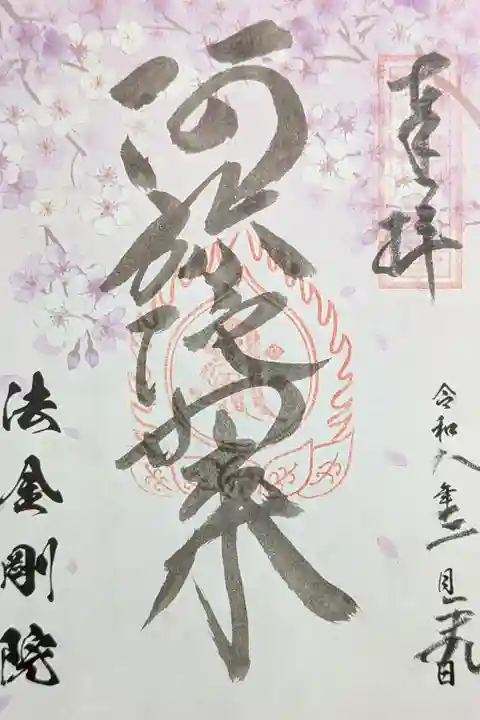 奉拝
令和八年三月二十九日
阿弥陀如来
法金剛院